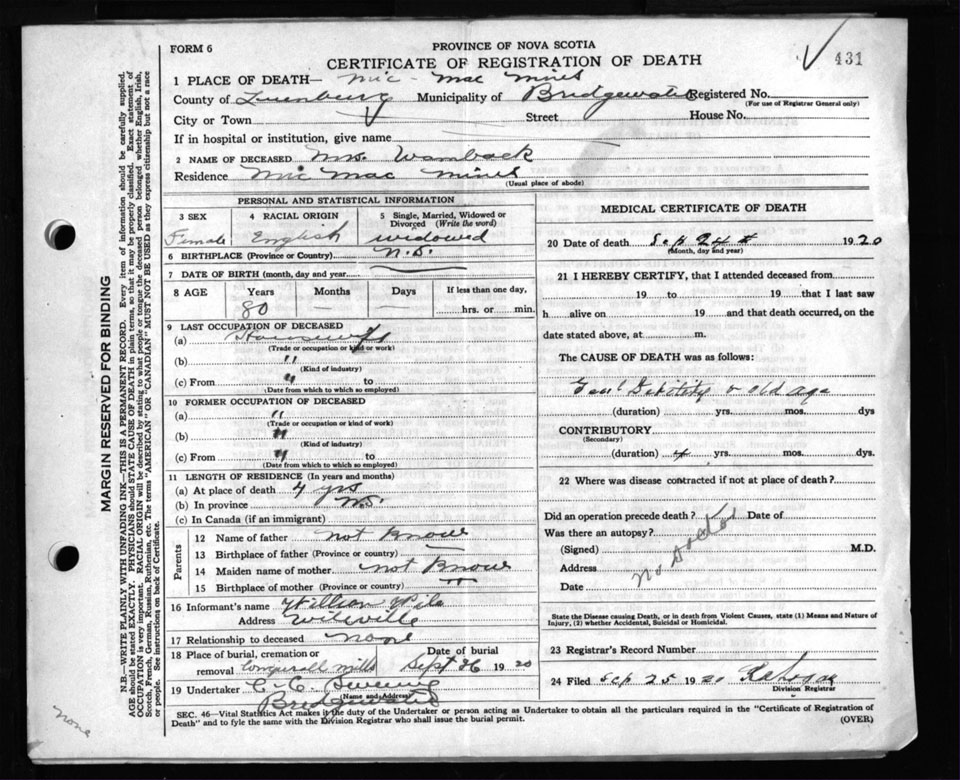 FORM 6
PROVINCE OF NOVA SCOTIA
CERTIFICATE OF REGISTRATION OF DEATH
431
1 PLACE OF DEATH— Mic - Mac Mines
County of Lunenburg Municipality of Bridgewater Registered No.
(For use of Registrar General only)
City or Town Street House No.
If in hospital or institution, give name
2 NAME OF DECEASED Mrs. Wamback
Residence Mic Mac Mines
(Usual place of abode)
PERSONAL AND STATISTICAL INFORMATION
3 SEX 4 RACIAL ORIGIN 5 Single, Married, Widowed or Divorced (Write the word)
Female English widowed
6 BIRTHPLACE (Province or Country) N.S.
7 DATE OF BIRTH (month, day and year)
8 AGE Years Months Days If less than one day,
80 — hrs. or min.
9 LAST OCCUPATION OF DECEASED
(a) Housewife
(Trade or occupation or kind or work)
(b) "
(Kind of industry)
(c) From " to
(Date from which to which so employed)
10 FORMER OCCUPATION OF DECEASED
(a) "
(Trade or occupation or kind of work)
(b) "
(Kind of industry)
(c) From " to
(Date from which to which so employed)
11 LENGTH OF RESIDENCE (In years and months)
(a) At place of death 4 yrs
(b) In province N.S.
(c) In Canada (if an immigrant)
Parents
12 Name of father not Know
13 Birthplace of father (Province or country) —
14 Maiden name of mother not Know
15 Birthplace of mother (Province or country) "
16 Informant's name William Wile
Address Wileville
17 Relationship to deceased none
18 Place of burial, cremation or removal Conquerall Mills Date of burial Sept 26 1920
19 Undertaker C. C.
(Name and Address)
Bridgewater
MEDICAL CERTIFICATE OF DEATH
20 Date of death Sep 24 1920
(Month, day and year)
21 I HEREBY CERTIFY, that I attended deceased from
19 to 19 that I last saw
h alive on 19 and that death occurred, on the
date stated above, at m.
The CAUSE OF DEATH was as follows:
Genl Debility & old age
(duration) yrs. mos. dys
CONTRIBUTORY
(Secondary)
(duration) 4 yrs. mos. dys.
22 Where was disease contracted if not at place of death?
Did an operation precede death? Date of
Was there an autopsy?
(Signed) M.D.
Address
Date
No Doctor
State the Disease causing Death, or in death from Violent Causes, state (1) Means and Nature of
Injury, (2) whether Accidental, Suicidal or Homicidal.
23 Registrar's Record Number
24 Filed Sep 25 1920
Division Registrar
SEC. 46—Vital Statistics Act makes it the duty of the Undertaker or person acting as Undertaker to obtain all the particulars required in the "Certificate of Registration of
Death" and to fyle the same with the Division Registrar who shall issue the burial permit.
(OVER)
MARGIN RESERVED FOR BINDING
N.B.—WRITE PLAINLY WITH UNFADING INK—THIS IS A PERMANENT RECORD. Every item of information should be carefully supplied.
AGE should be stated EXACTLY. PHYSICIANS should STATE CAUSE OF DEATH in plain terms, so that it may be properly classified. Exact statement of
OCCUPATION is very important. RACIAL ORIGIN will be described by stating to what people or tongue the deceased person belonged whether English, Irish,
Scotch, French, German, Russian, Ruthenian, etc. The terms "AMERICAN" OR "CANADIAN" MUST NOT BE USED as they express citizenship but not a race
or people. See instructions on back of Certificate.
none